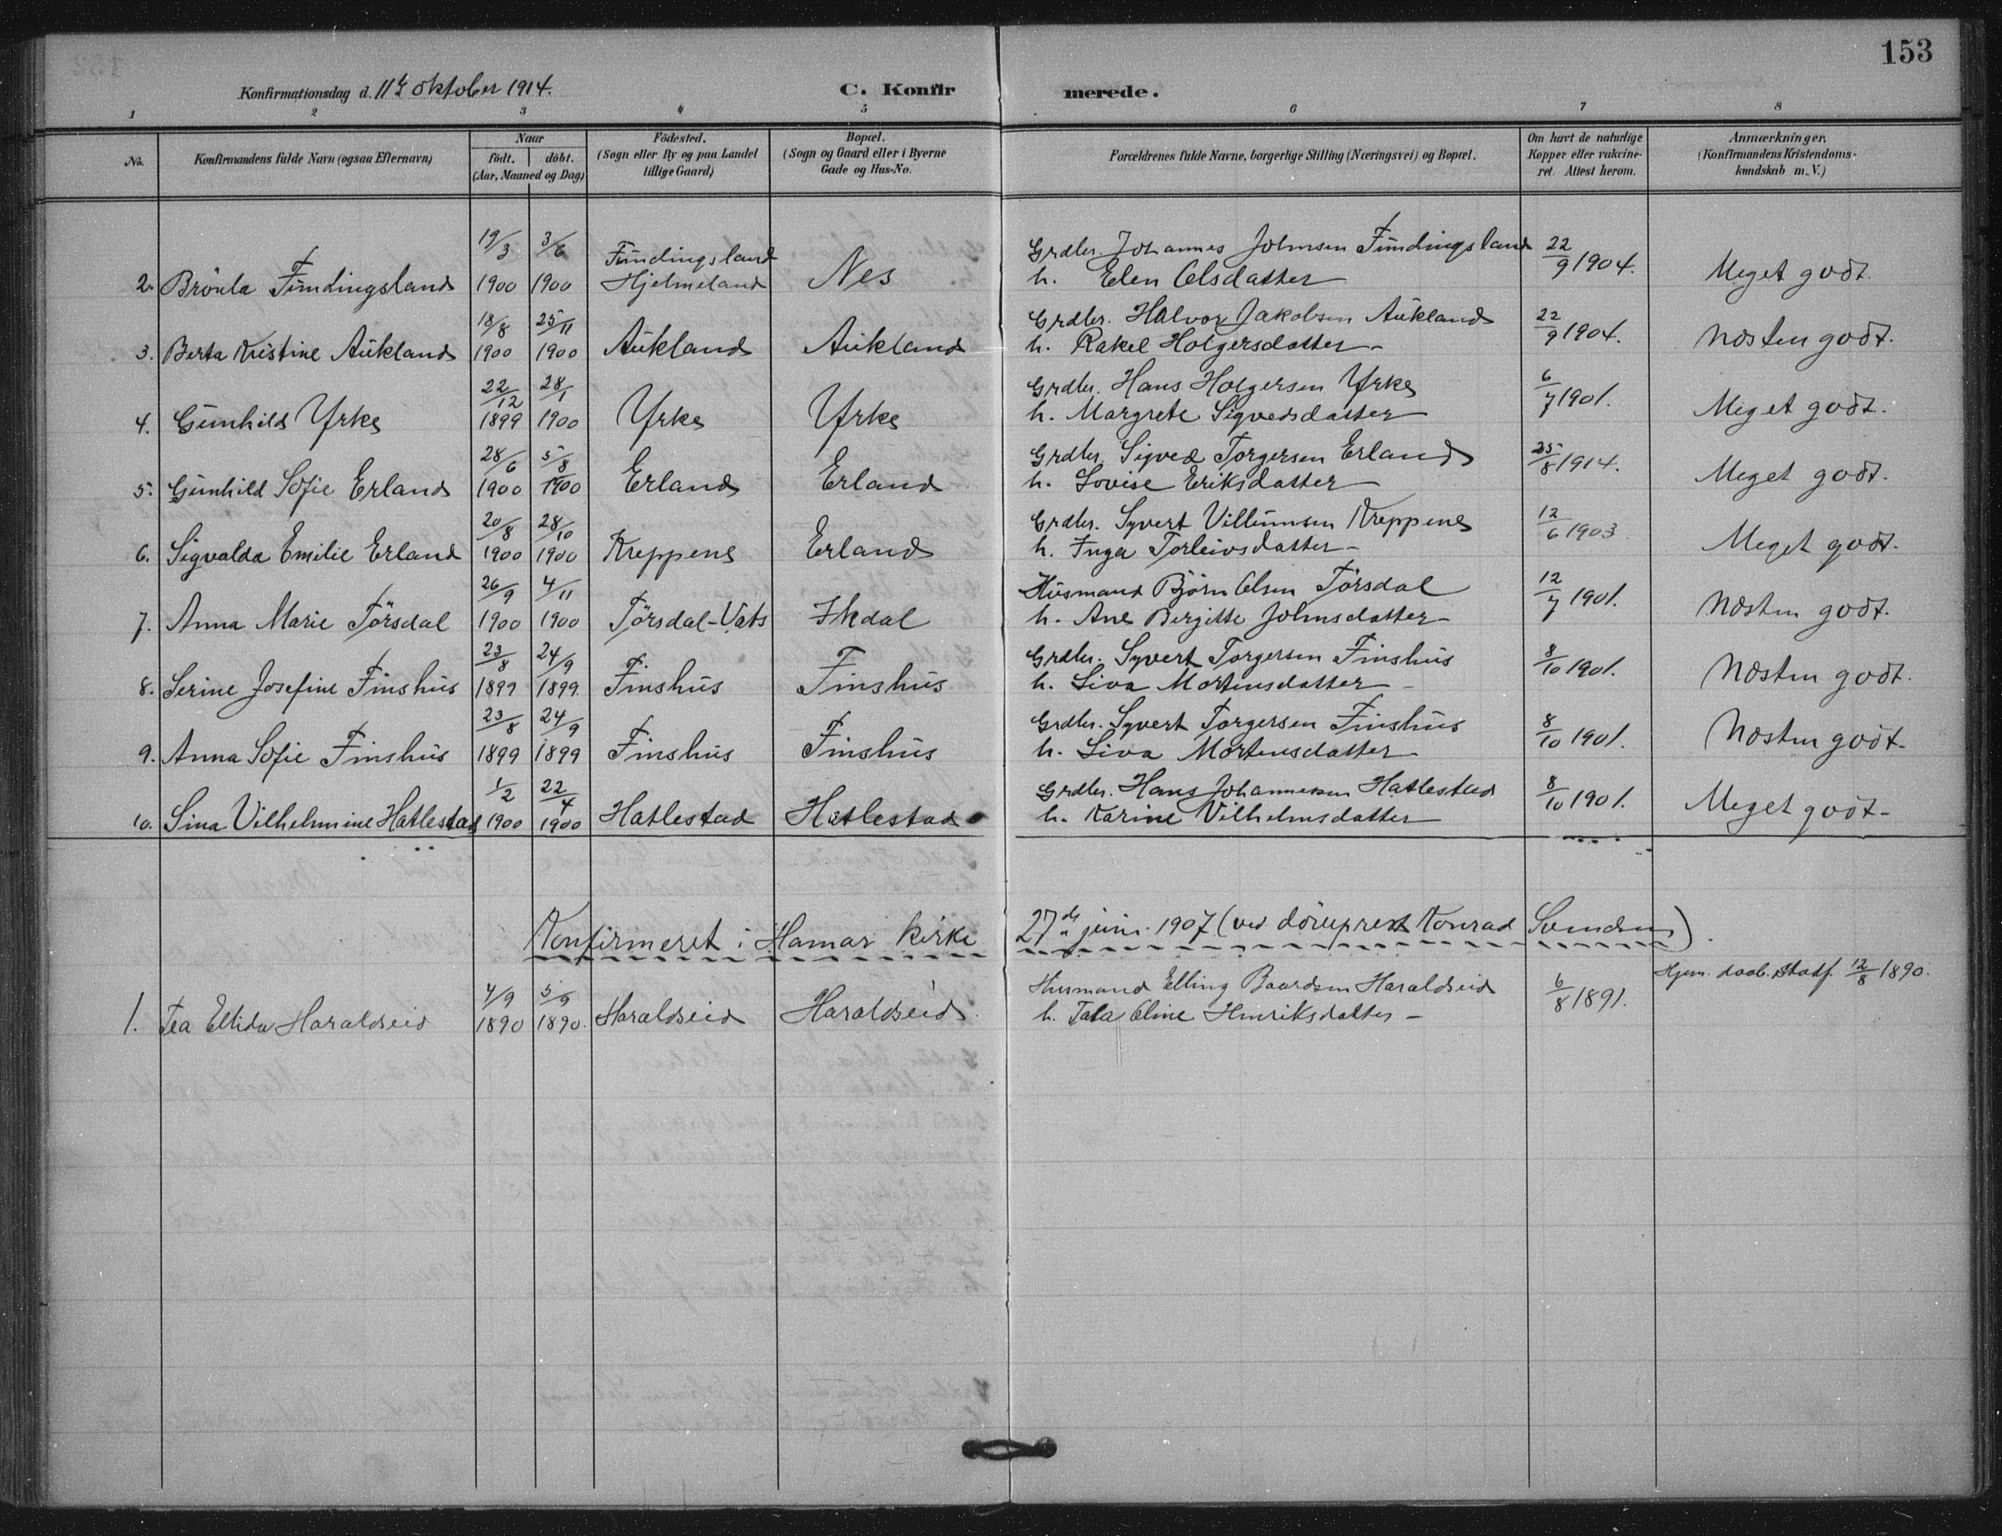 153
Konfirmationsdag d. 11te oktober 1914. C. Konfirmerede.
1 2 3 4 5 6 7 8
No. Konfirmandens fulde Navn (ogsaa Efternavn) Naar födt. döbt. (Aar, Maaned og Dag) Födested. (Sogn eller By og paa Landet tillige Gaard) Bopæl. (Sogn og Gaard eller i Byerne Gade og Hus-No. Forældrenes fulde Navne, borgerlige Stilling (Næringsvei) og Bopæl. Om havt de naturlige Kopper eller vakcineret. Attest herom. Anmærkninger, (Konfirmandens Kristendomskundskab m. V.)
19/3 3/6 Fündingsland Grdbr. Johannes Johnsen Fündingsland 22/9 1904.
2. Fündingsland 1900 1900 Hjelmeland Nes h. Elen Olsdatter Meget godt.
18/8 25/11 Grdbr. Halvor Jakobsen Aükland 22/9 1904.
3. Berta Kristine Aükland 1900 1900 Aükland Aükland h. Rakel Holgersdatter Næsten godt.
22/12 28/1 Grdbr. Hans Holgersen Yrke 6/7 1901.
4. Günhild Yrke 1899 1900 Yrke Yrke h. Margrete Sigvedsdatter Meget godt.
28/6 5/8 Grdbr. Sigved Torgersen Erland 25/8 1914.
5. Günhild Sofie Erland 1900 1900 Erland Erland h. Lovise Eriksdatter Meget godt.
20/8 28/10 Grdbr. Syvert Villümsen Kreppene 12/6 1903.
6. Sigvalda Emilie Erland 1900 1900 Kreppene Erland h. Inga Torleivsdatter Meget godt.
26/9 4/11 Hüsmand Bjørn Olsen Tørsdal 12/7 1901.
7. Anna Marie Tørsdal 1900 1900 Tørsdal-Vats Ikdal h. Ane Bergitte Johnsdatter Næsten godt.
23/8 24/9 Grdbr. Syvert Torgersen Finshüs 8/10 1901.
8. Serine Josefine Finshüs 1899 1899 Finshüs Finshüs h. Siva Mortensdatter Næsten godt.
23/8 24/9 Grdbr. Syvert Torgersen Finshüs 8/10 1901.
9. Anna Sofie Finshüs 1899 1899 Finshüs Finshüs h. Siva Mortensdatter Næsten godt.
1/2 22/4 Grdbr. Hans Johannessen Hatlestad 8/10 1901.
10. Sina Vilhelmine Hatlestad 1900 1900 Hatlestad Hatlestad h. Karine Vilhelmsdatter Meget godt.
Konfirmeret i Hamar kirke 27de juni 1907 (ved Konrad Svendsen).
4/9 5/9 Husmand Elling Baardsen Haraldseid 6/8 1891. Hjem. daab. stadf. 12/8 1890.
1. Tea Ellida Haraldseid 1890 1890 Haraldseid Haraldseid h. Tala Oline Henriksdatter